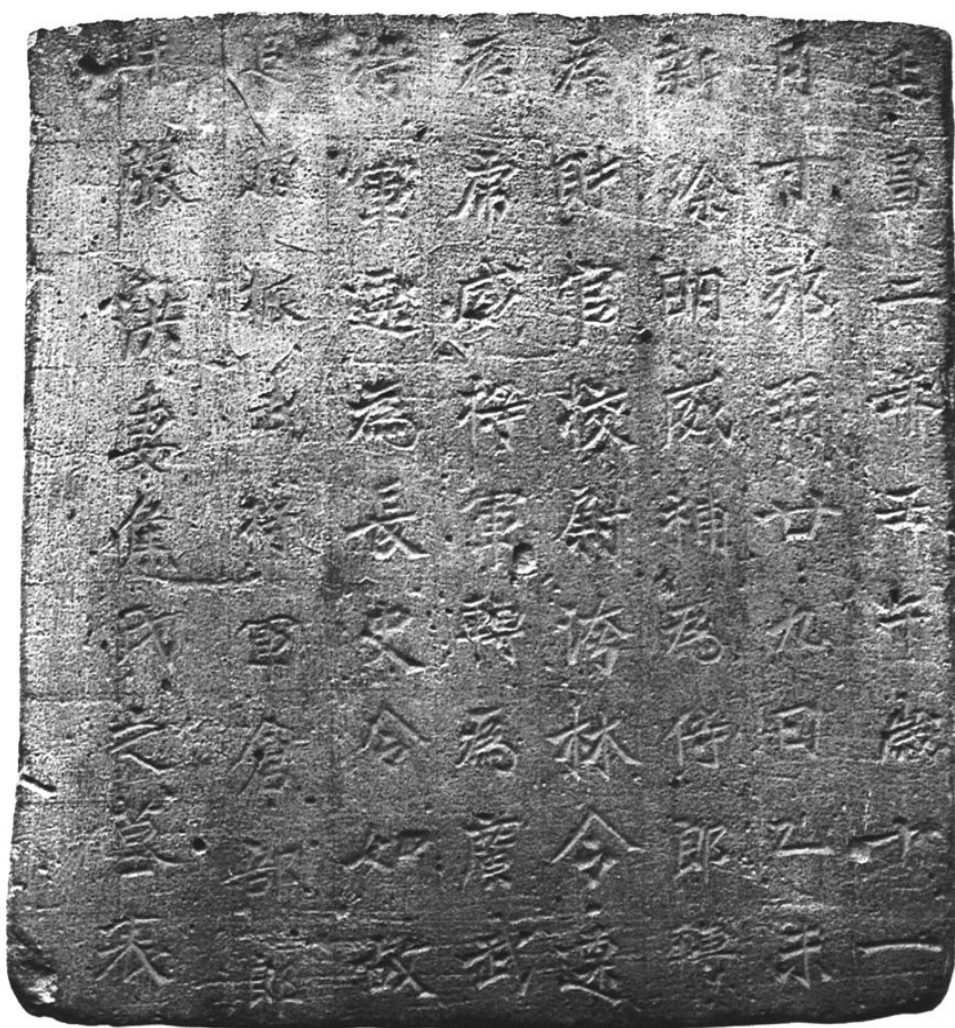 延昌二年壬午歲十一
月丁卯朔廿九日乙未
新除明威補為侍郎轉
為財官校尉洿林令遷
為虎威將軍轉為廣武
將軍遷為長史令如故
追贈振武將軍倉部郎
中張洪妻焦氏之墓表